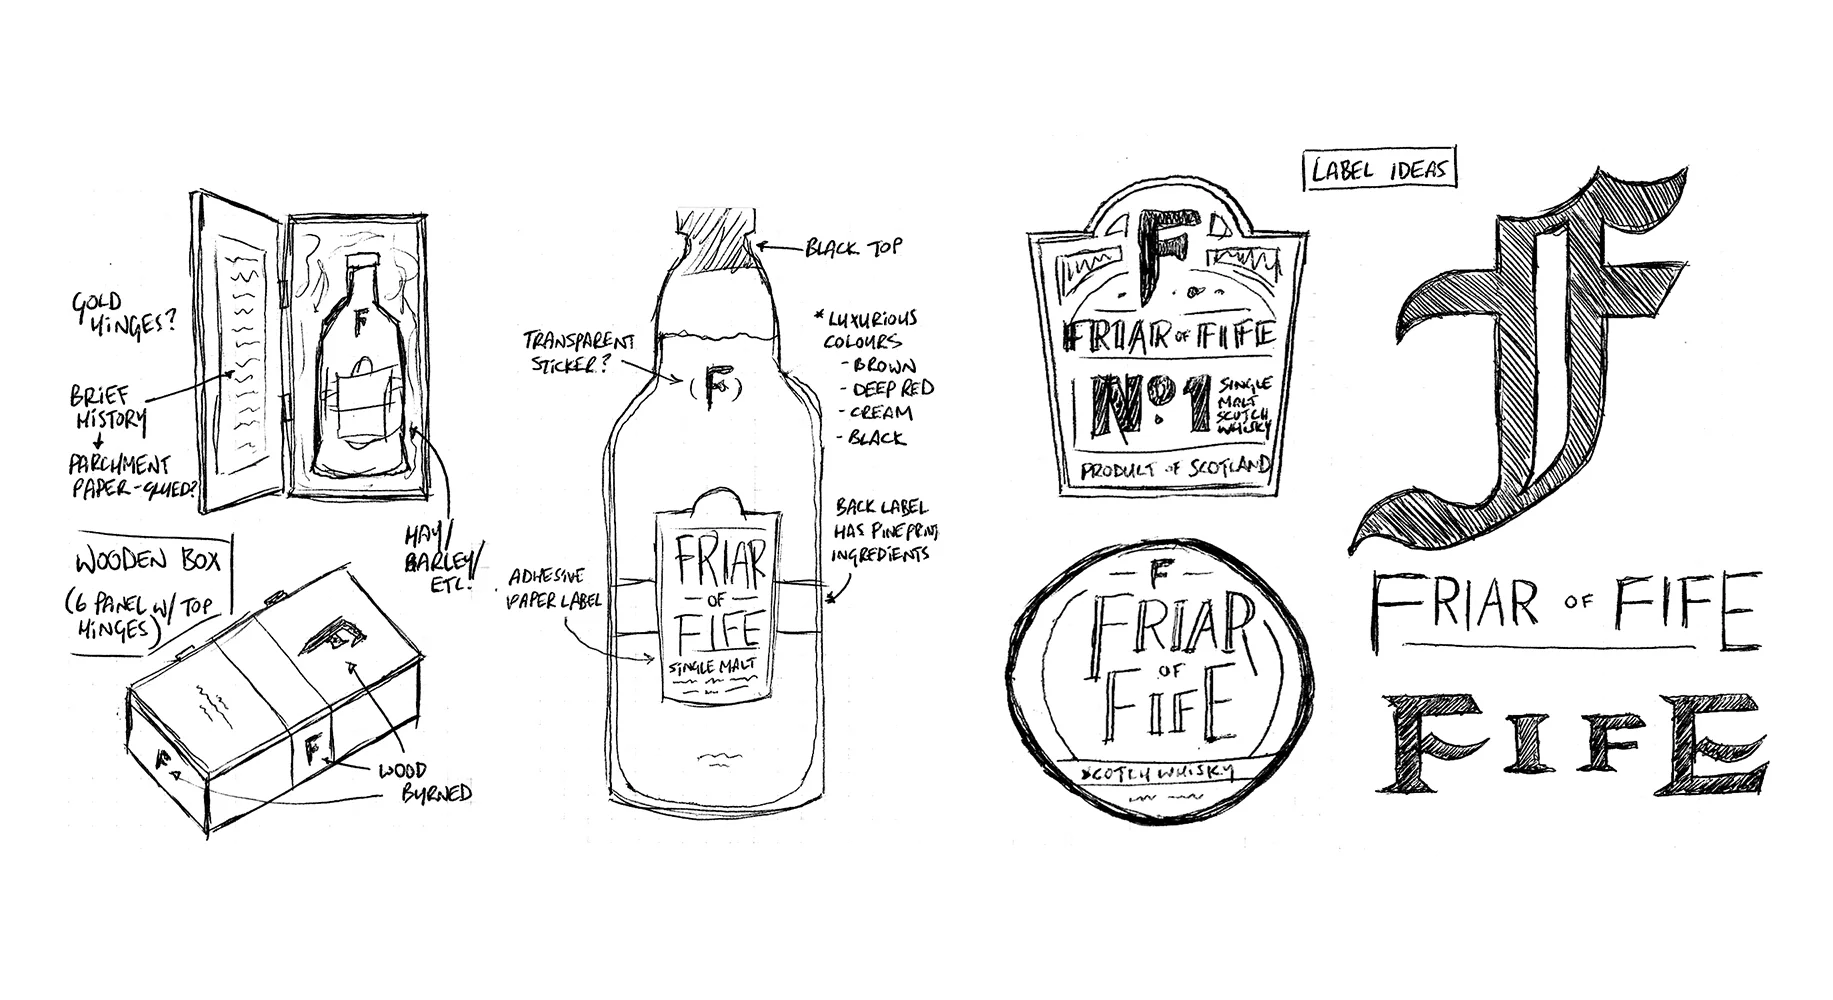 GOLD
HINGES?
BRIEF
HISTORY
PARCHMENT
PAPER - GLUED?
F
HAY/
BARLEY/
ETC.
WOODEN BOX
(6 PANEL W/ TOP
HINGES)
F
F
WOOD
BURNED
BLACK TOP
TRANSPARENT
STICKER?
F
* LUXURIOUS
COLOURS
- BROWN
- DEEP RED
- CREAM
- BLACK
BACK LABEL
HAS FINEPRINT
INGREDIENTS
ADHESIVE
PAPER LABEL
FRIAR
- OF -
FIFE
SINGLE MALT
LABEL IDEAS
F
FRIAR OF FIFE
Nº1
SINGLE
MALT
SCOTCH
WHISKY
PRODUCT OF SCOTLAND
- F -
FRIAR
OF
FIFE
SCOTCH WHISKY
F
FRIAR OF FIFE
FIFE